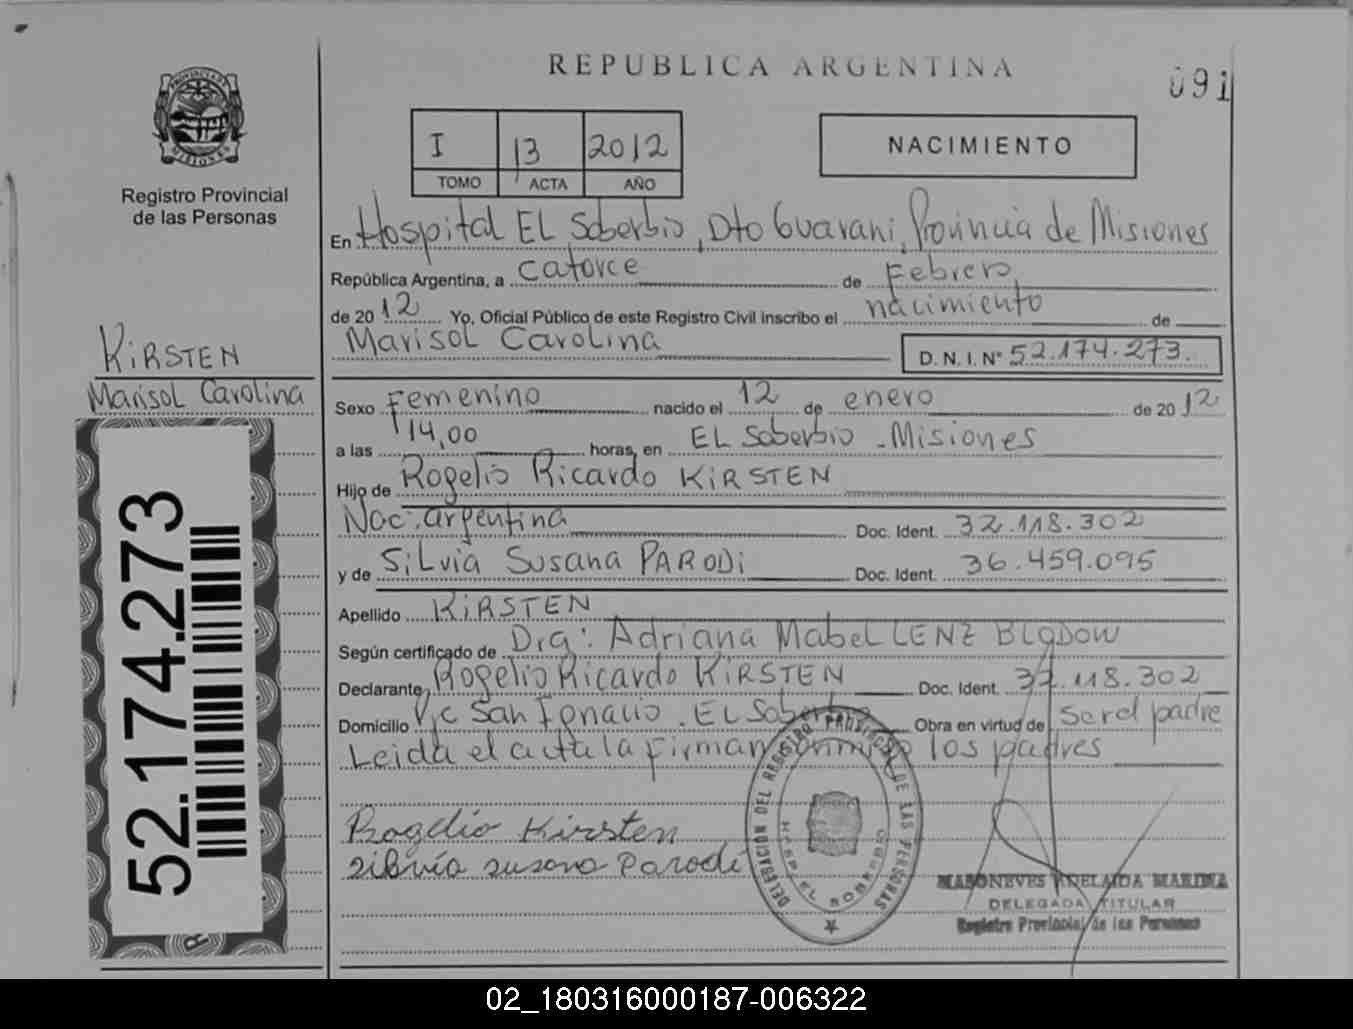 REPUBLICA ARGENTINA
091
PROVINCIA DE MISIONES
Registro Provincial
de las Personas
I 13 2012
TOMO ACTA AÑO
NACIMIENTO
En Hospital EL Soberbio, Dto Guarani, Provincia de Misiones
República Argentina, a catorce de Febrero
de 2012 Yo, Oficial Público de este Registro Civil inscribo el nacimiento de
Marisol Carolina D. N. I. N° 52.174.273.
KIRSTEN
Marisol Carolina
Sexo Femenino nacido el 12 de enero de 2012
a las 14,00 horas, en EL Soberbio - Misiones
Hijo de Rogelio Ricardo KIRSTEN
Nac. argentina Doc. Ident. 32.118.302
y de Silvia Susana PARODI Doc. Ident. 36.459.095
Apellido KIRSTEN
Según certificado de Dra: Adriana Mabel LENZ BLODOW
Declarante Rogelio Ricardo KIRSTEN Doc. Ident. 32.118.302
Domicilio Pje San Ignacio. EL Soberbio Obra en virtud de ser el padre
Leida el acta la firman conmigo los padres
Rogelio Kirsten
silvia susana Parodi
52.174.273
DELEGACION DEL REGISTRO PROVINCIAL DE LAS PERSONAS
HOSP. EL SOBERBIO
MASONEVES ADELAIDA MARINA
DELEGADA TITULAR
Registro Provincial de las Personas
02_180316000187-006322